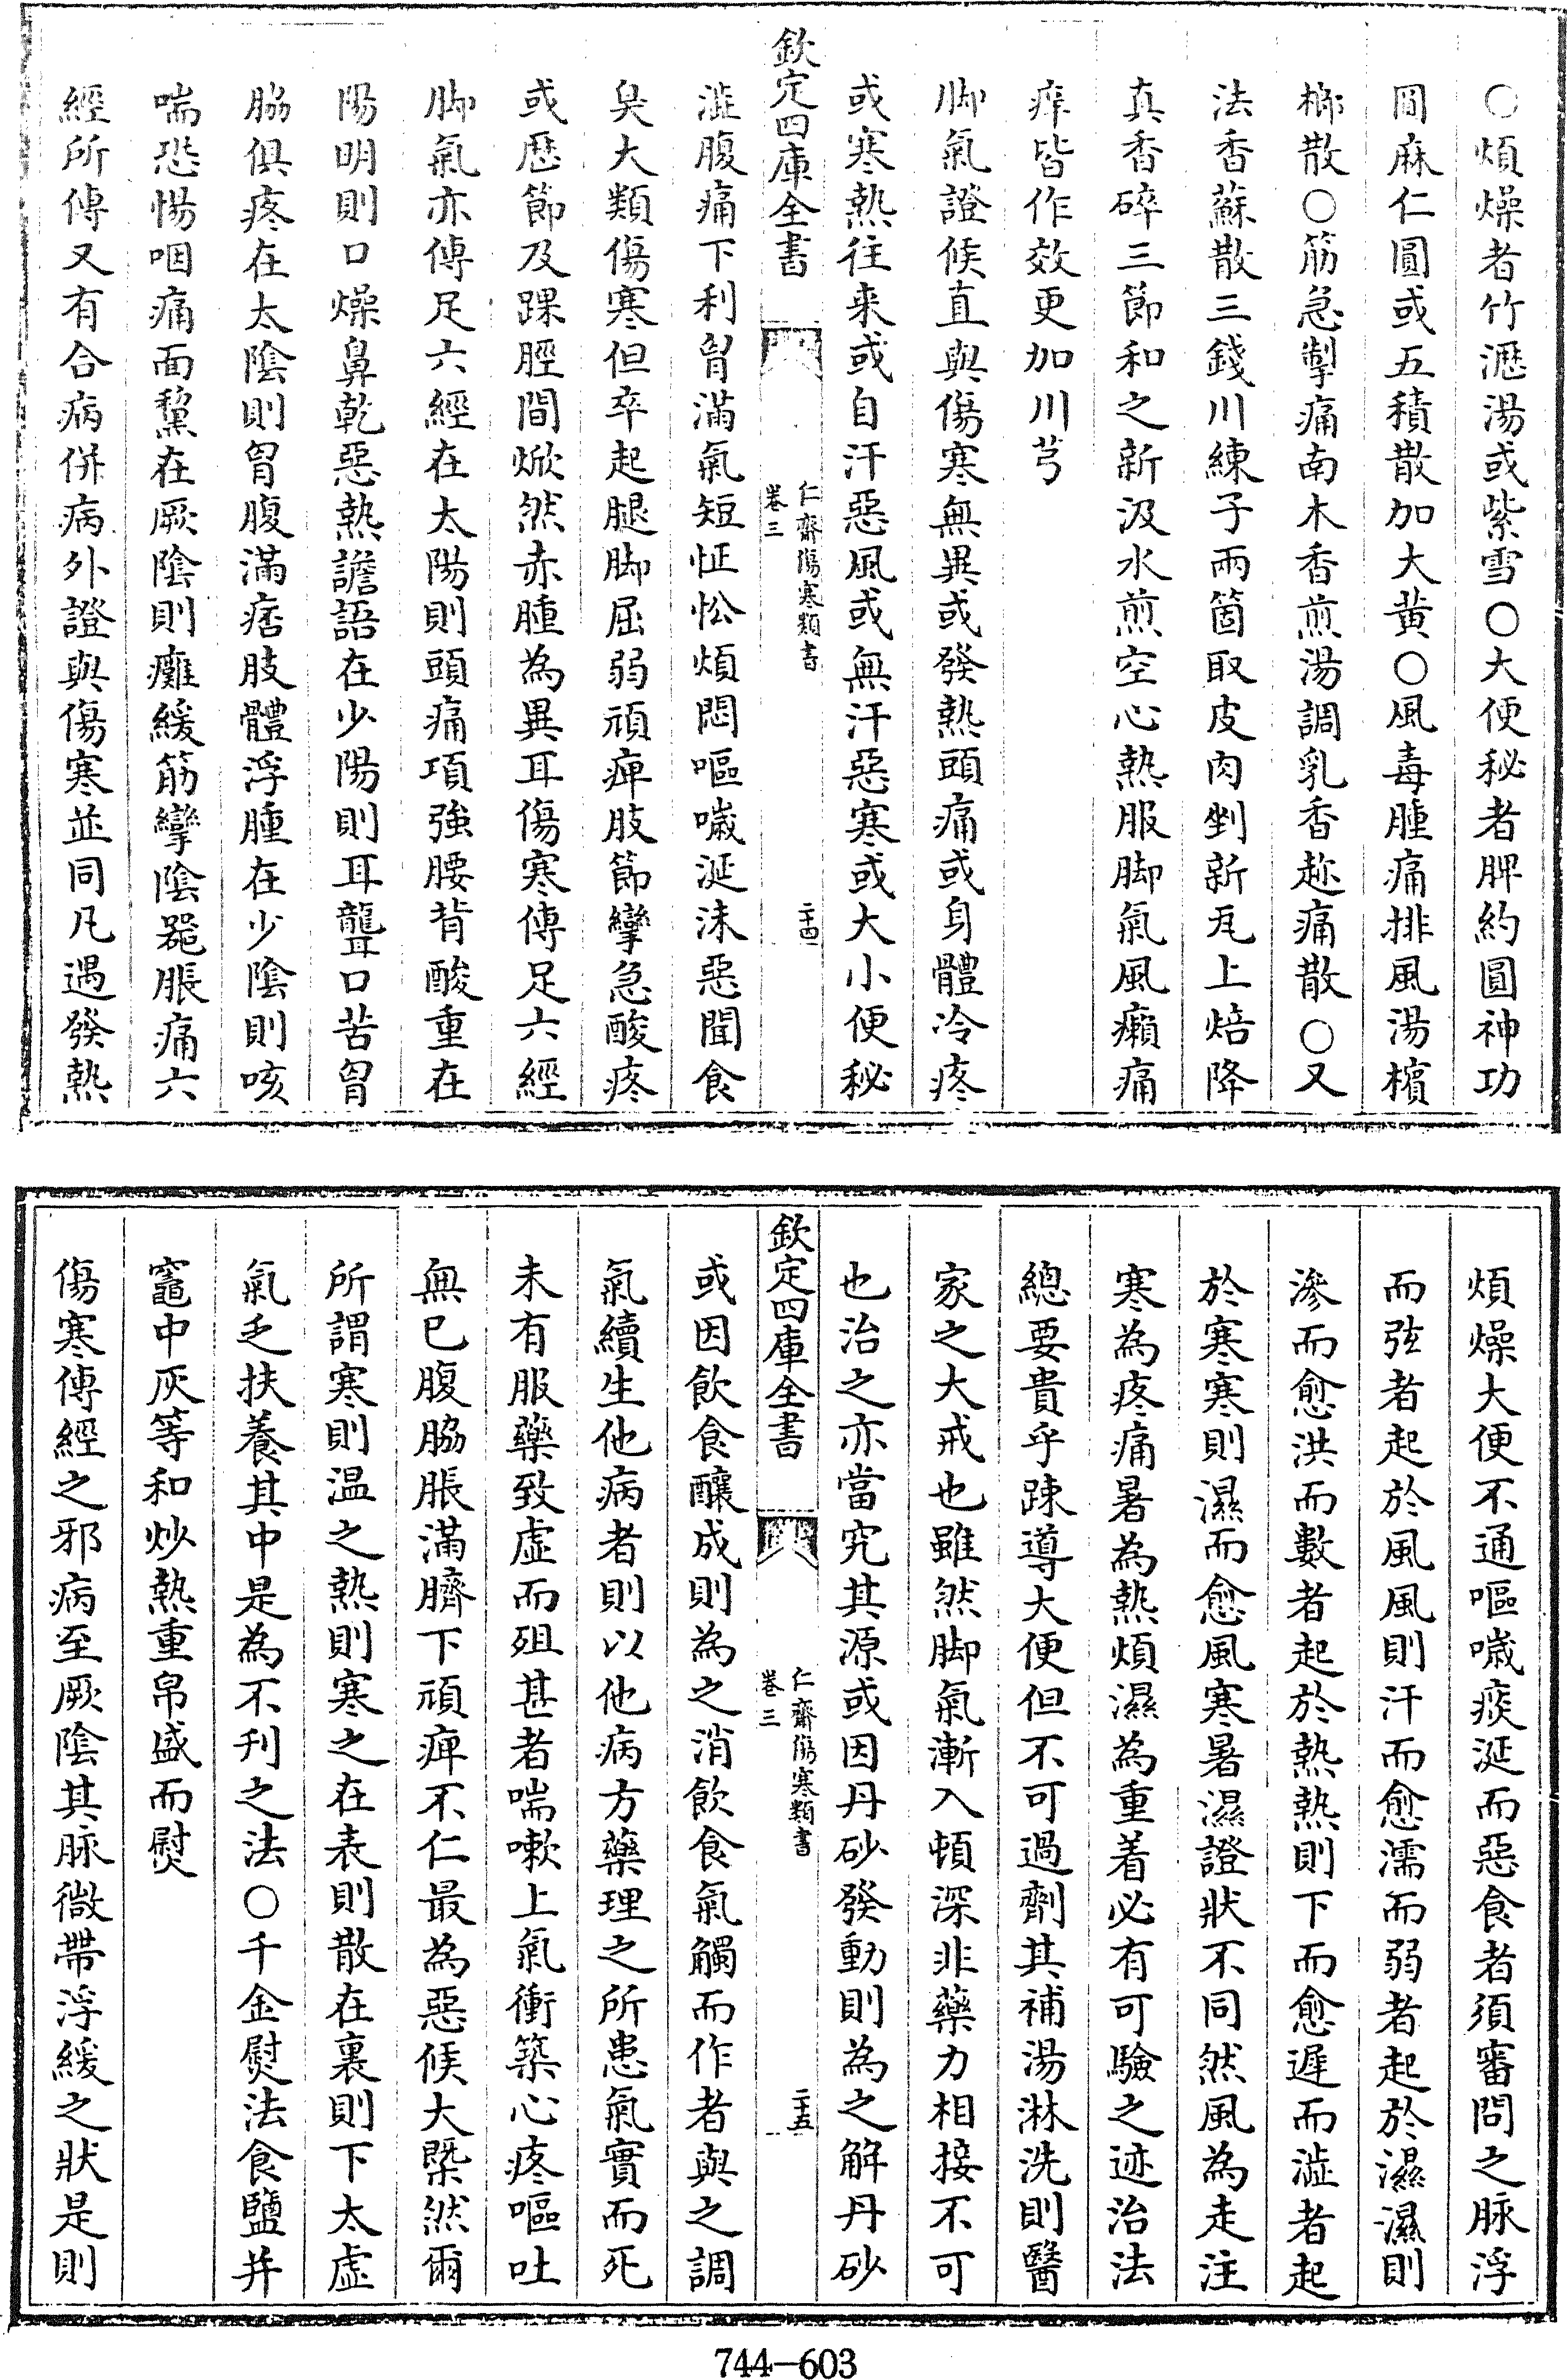 ○煩燥者竹瀝湯或紫雪○大便秘者脾約圓神功
圓麻仁圓或五積散加大黄○風毒腫痛排風湯檳
榔散○筋急掣痛南木香煎湯調乳香趂痛散○又
法香蘇散三錢川練子兩箇取皮肉剉新瓦上焙降
真香碎三節和之新汲水煎空心熱服脚氣風癩痛
痒皆作效更加川芎
脚氣證候直與傷寒無異或發熱頭痛或身體冷疼
或寒熱往来或自汗惡風或無汗惡寒或大小便秘
欽定四庫全書
仁齋傷寒類書
卷三
二十四
澁腹痛下利胷滿氣短怔忪煩悶嘔噦涎沫惡聞食
臭大類傷寒但卒起腿脚屈弱頑痺肢節攣急酸疼
或歴節及踝脛間焮然赤腫為異耳傷寒傳足六經
脚氣亦傳足六經在太陽則頭痛項強腰背酸重在
陽明則口燥鼻乾惡熱譫語在少陽則耳聾口苦胷
脇俱疼在太陰則胷腹滿痞肢體浮腫在少陰則咳
喘恐惕咽痛面黧在厥陰則癱緩筋攣陰器脹痛六
經所傳又有合病併病外證與傷寒並同凡遇發熱
煩燥大便不通嘔噦痰涎而惡食者須審問之脉浮
而弦者起於風風則汗而愈濡而弱者起於濕濕則
滲而愈洪而數者起於熱熱則下而愈遲而澁者起
於寒寒則濕而愈風寒暑濕證狀不同然風為走注
寒為疼痛暑為熱煩濕為重着必有可驗之迹治法
總要貴乎疎導大便但不可過劑其補湯淋洗則醫
家之大戒也雖然脚氣漸入頓深非藥力相接不可
也治之亦當究其源或因丹砂發動則為之解丹砂
欽定四庫全書
仁齋傷寒類書
卷三
二十五
或因飲食釀成則為之消飲食氣觸而作者與之調
氣續生他病者則以他病方藥理之所患氣實而死
未有服藥致虚而殂甚者喘嗽上氣衝築心疼嘔吐
無已腹脇脹滿臍下頑痺不仁最為惡候大槩然爾
所謂寒則温之熱則寒之在表則散在裏則下太虚
氣乏扶養其中是為不刊之法○千金熨法食鹽并
竈中灰等和炒熱重帛盛而熨
傷寒傳經之邪病至厥陰其脉微帶浮緩之狀是則
744-603